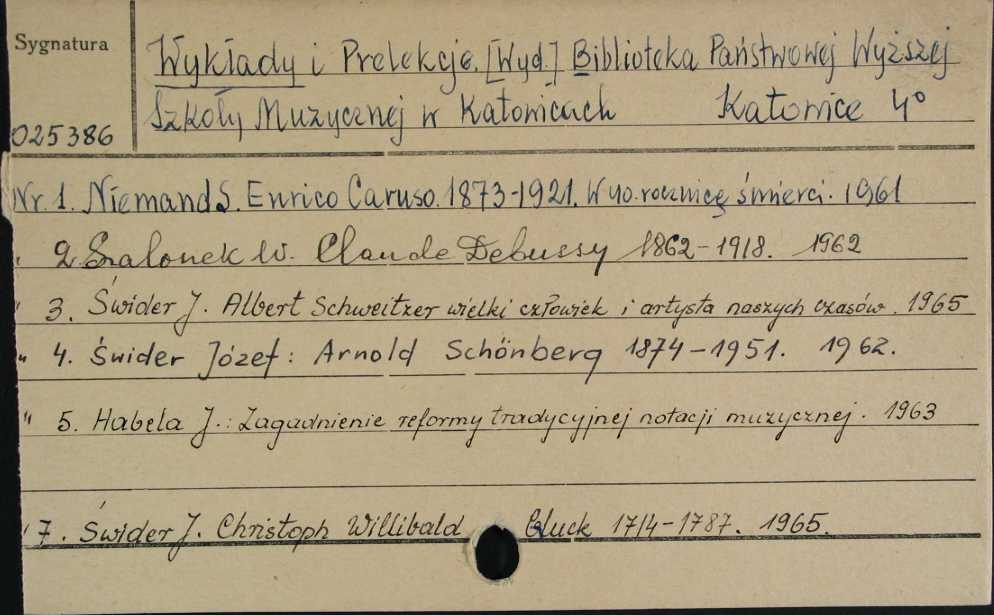 Sygnatura
Wykłady i Prelekcje. [Wyd.] Biblioteka Państwowej Wyższej
Szkoły Muzycznej w Katowicach Katowice 4°
025386
Nr. 1. Niemand S. Enrico Caruso. 1873-1921. W 40. rocznicę śmierci. 1961
" 2 Szalonek W. Claude Debussy 1862-1918. 1962
" 3. Świder J. Albert Schweitzer wielki człowiek i artysta naszych czasów. 1965
" 4. Świder Józef: Arnold Schönberg 1874-1951. 1962.
" 5. Habela J.: Zagadnienie reformy tradycyjnej notacji muzycznej. 1963
" 7. Świder J. Christoph Willibald Gluck 1714-1787. 1965.